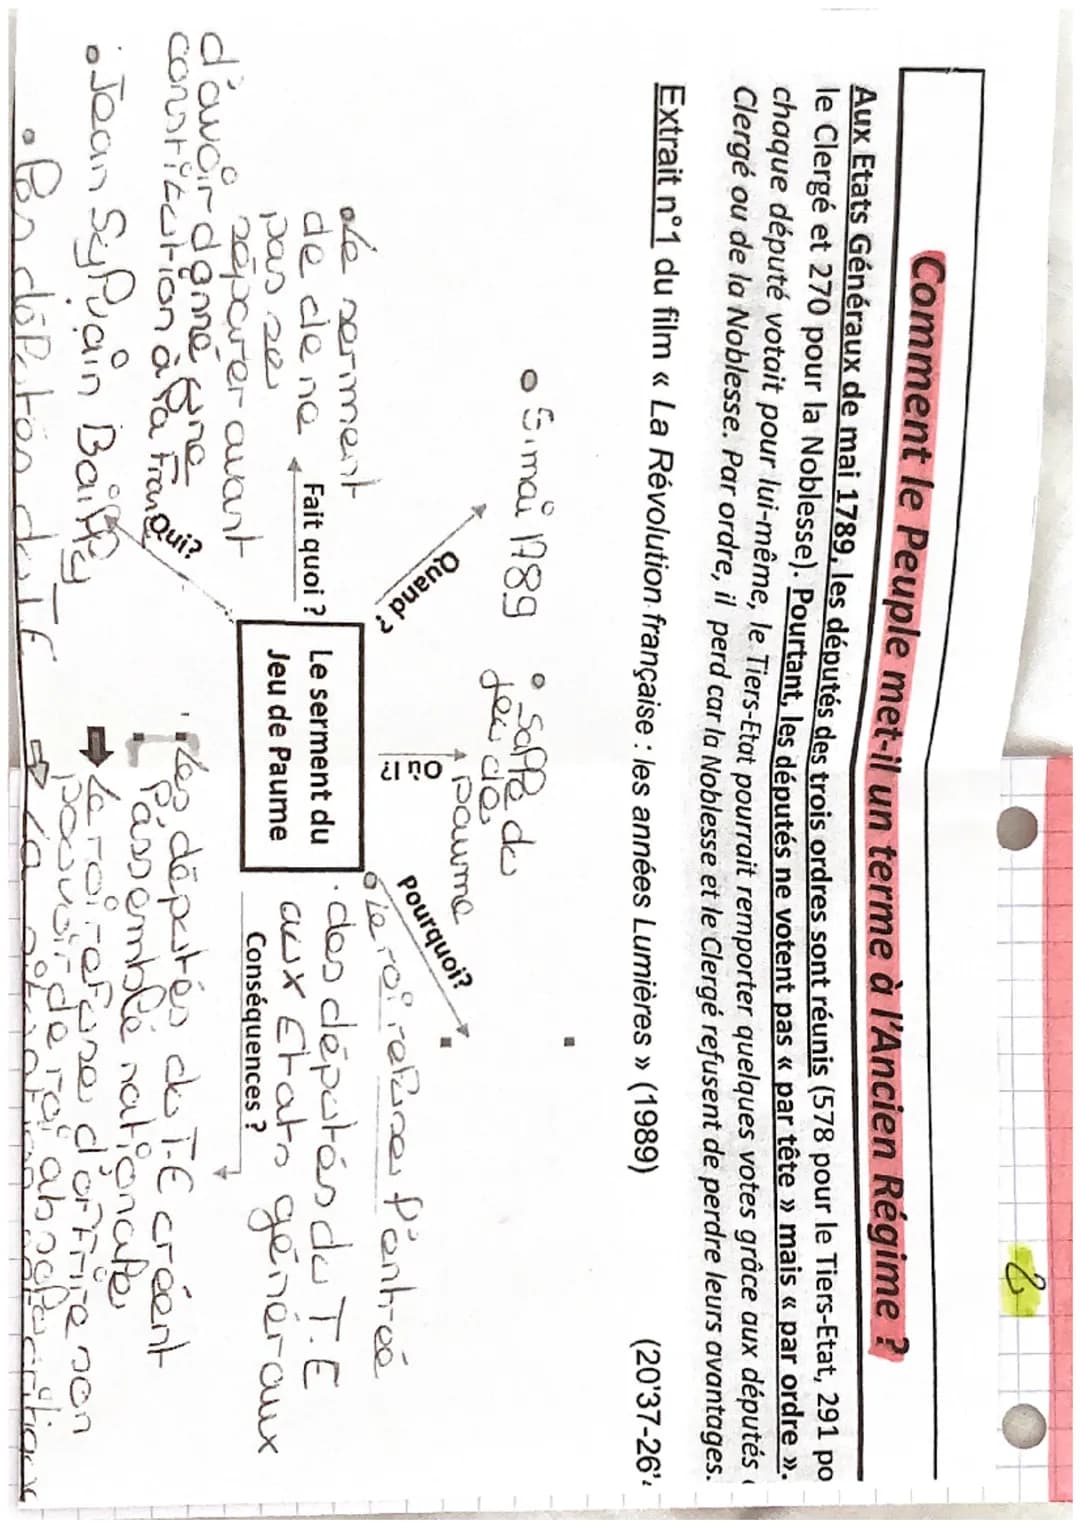 2
Comment le Peuple met-il un terme à l'Ancien Régime ?
Aux Etats Généraux de mai 1789, les députés des trois ordres sont réunis (578 pour le Tiers-Etat, 291 po
le Clergé et 270 pour la Noblesse). Pourtant, les députés ne votent pas « par tête » mais « par ordre ».
chaque député votait pour lui-même, le Tiers-Etat pourrait remporter quelques votes grâce aux députés
Clergé ou de la Noblesse. Par ordre, il perd car la Noblesse et le Clergé refusent de perdre leurs avantages.
Extrait n°1 du film « La Révolution française : les années Lumières » (1989) (20'37-26'
• 5 mai 1789
• Salle du
jeu de
paume
Quand ?
Où ?
Pourquoi?
• Le roi refuse l'entrée
• des députés du T.E
aux Etats généraux
• Le serment
de de ne
pas se
séparer avant
d'avoir donné une
constitution à la France
Fait quoi ?
Le serment du
Jeu de Paume
Conséquences ?
Qui?
• Jean Sylvain Bailly
• Les députés du T.E
• Les députés du T.E créent
l'assemblé nationale
➡ Le roi refuse d'offrire son
pouvoir de roi absolu
⇨ La